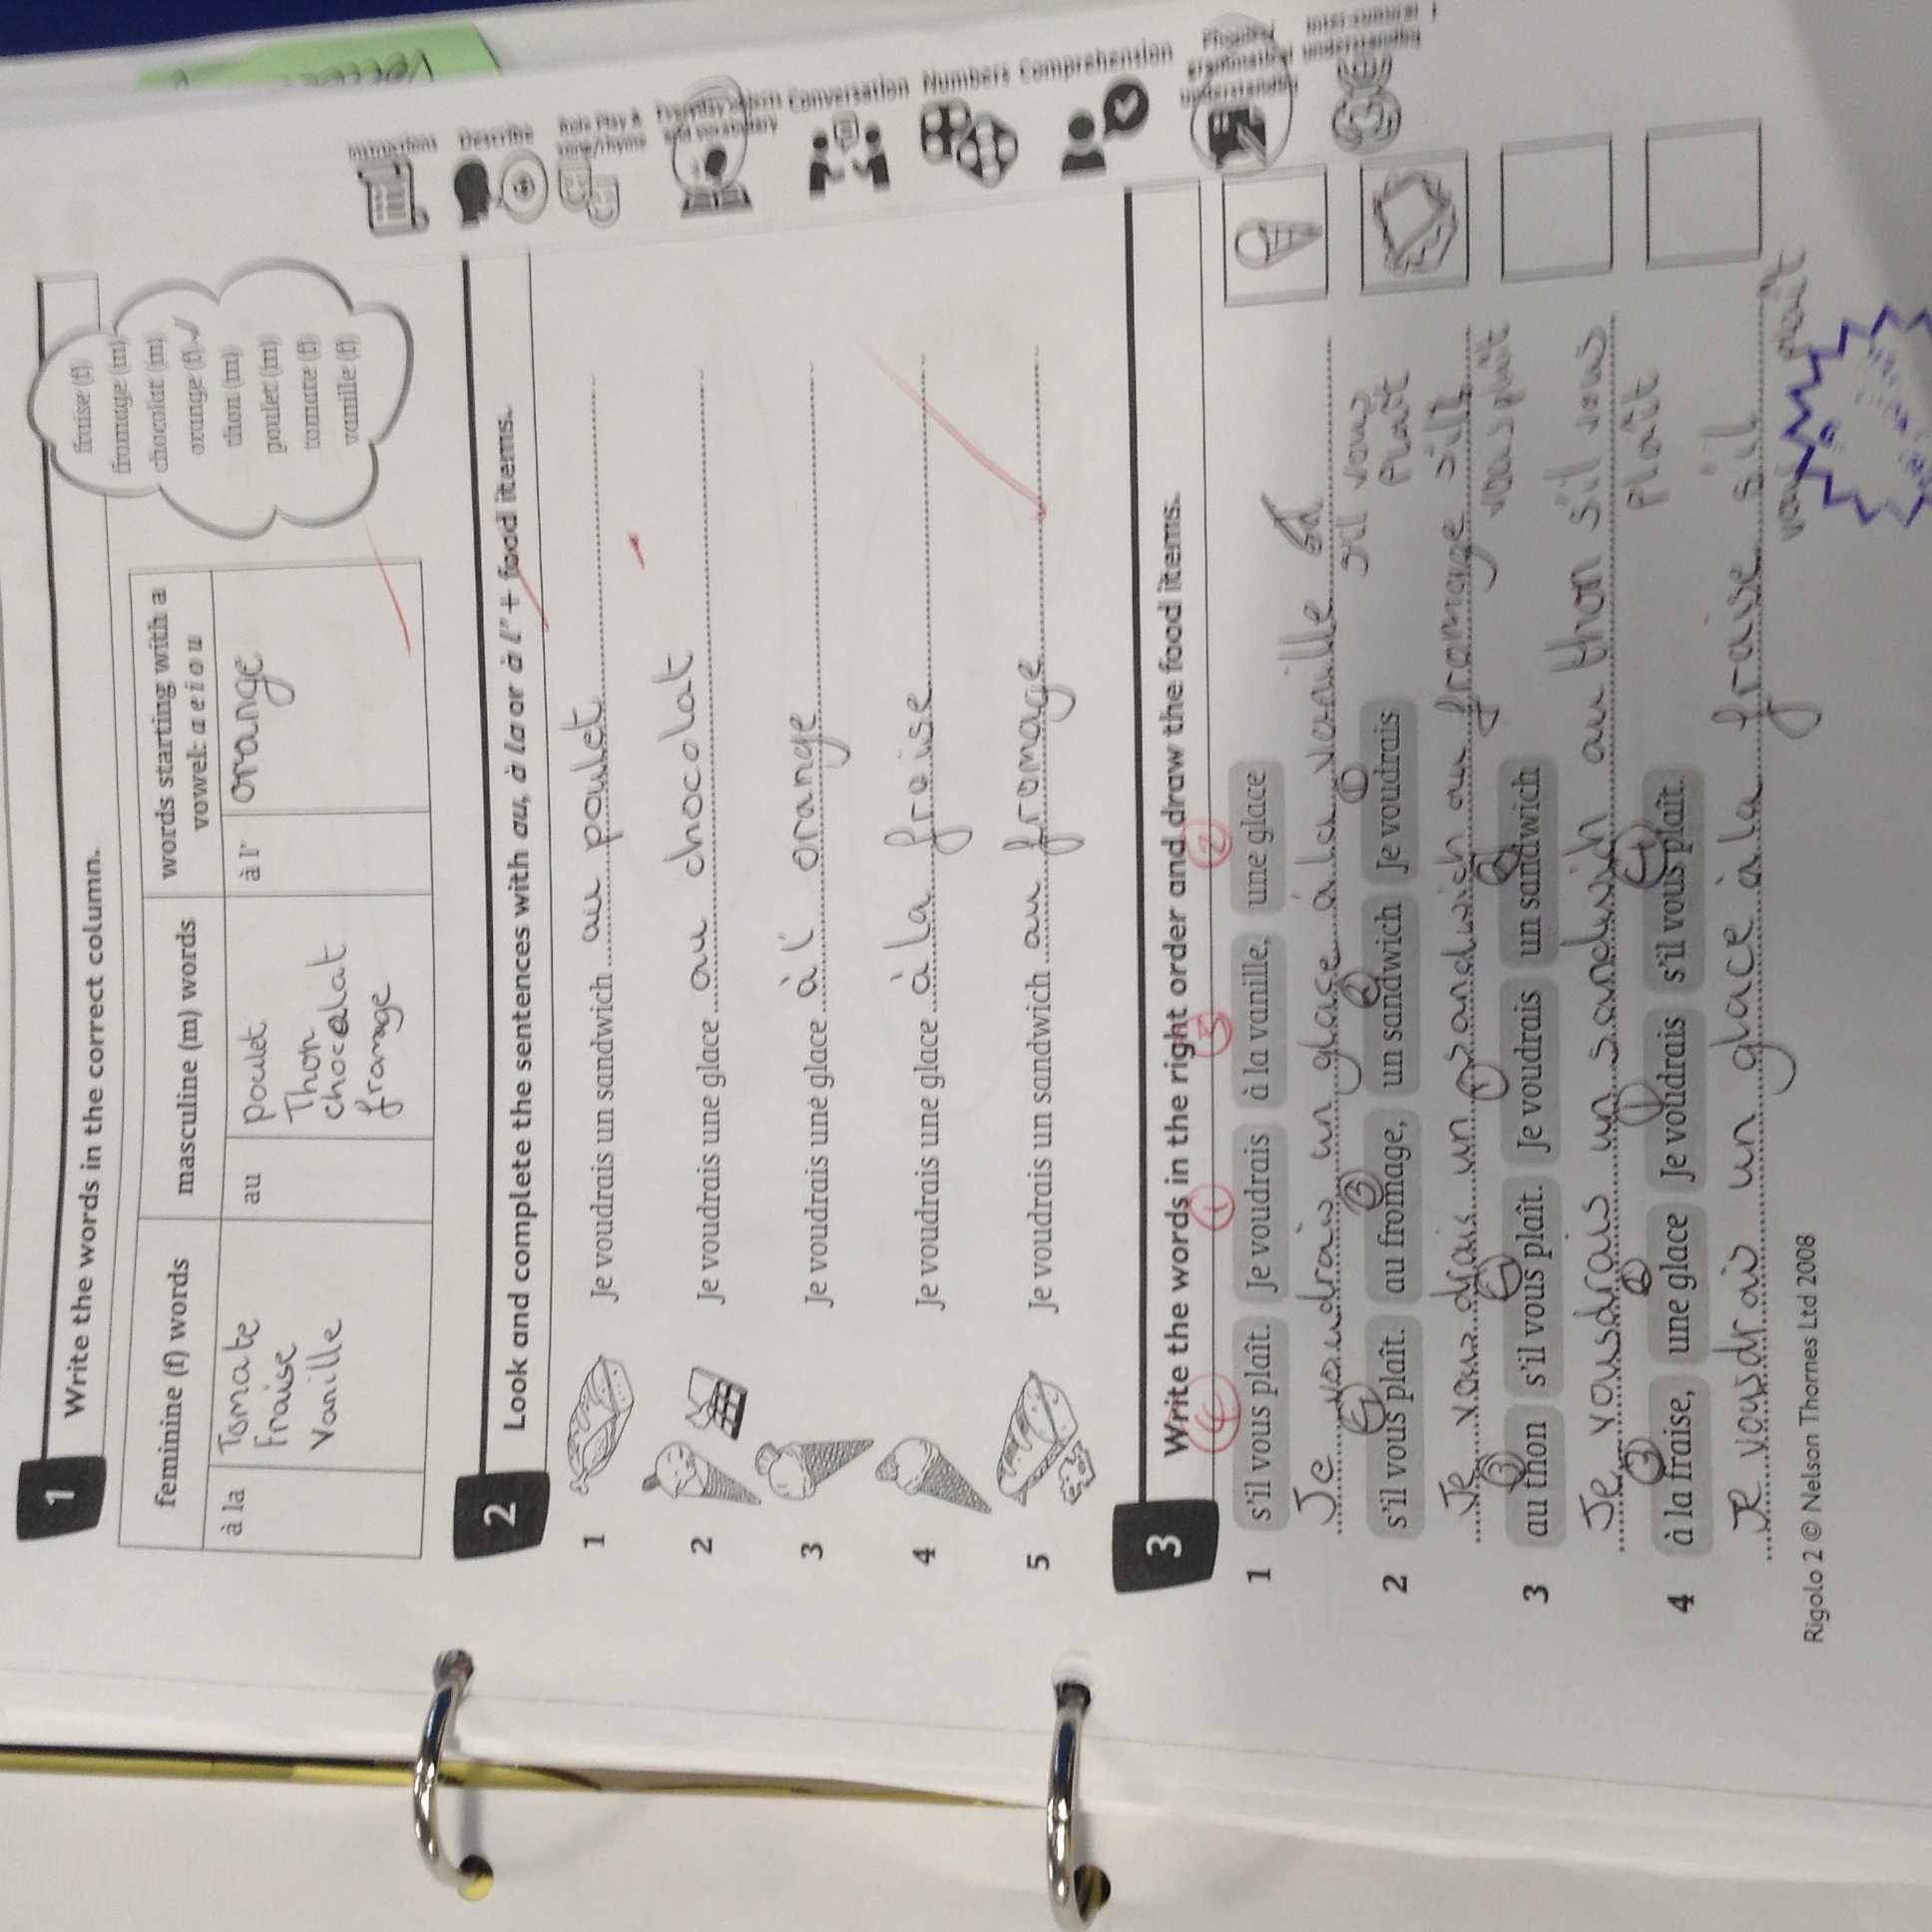 1 Write the words in the correct column.
feminine (f) words
masculine (m) words
words starting with a
vowel: a e i o u
à la
Tomate
Fraise
Vanille
au
poulet
Thon
chocolat
framage
à l'
orange
fraise (f)
fromage (m)
chocolat (m)
orange (f) ✓
thon (m)
poulet (m)
tomate (f)
vanille (f)
2 Look and complete the sentences with au, à la or à l' + food items.
1 Je voudrais un sandwich au poulet
2 Je voudrais une glace au chocolat
3 Je voudrais une glace à l' orange
4 Je voudrais une glace à la fraise
5 Je voudrais un sandwich au fromage
3 Write the words in the right order and draw the food items.
4 1 3 2
1 s'il vous plaît. Je voudrais à la vanille, une glace
Je voudrais un glace à la vanille
s'il vous
plaît
4 3 2 1
2 s'il vous plaît. au fromage, un sandwich Je voudrais
Je vousdrais un sandwich au fromage s'il
vous plaît
3 4 1 2
3 au thon s'il vous plaît. Je voudrais un sandwich
Je vousdrais un sandwich au thon s'il vous
plaît
3 2 1 4
4 à la fraise, une glace Je voudrais s'il vous plaît.
Je vousdrais un glace à la fraise s'il
vous plaît
Rigolo 2 © Nelson Thornes Ltd 2008
Instructions
Describe
Role Play &
song/rhyme
Everyday objects
and vocabulary
Conversation
Numbers
Comprehension
grammatical
understanding
Inter-cultural
understanding